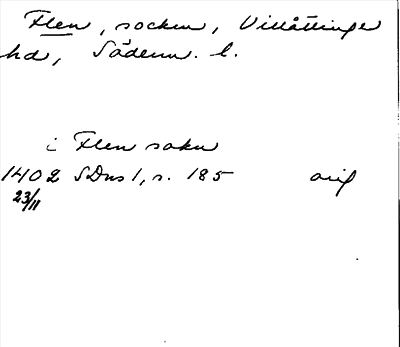 Flen, socken, Villåttinge
hd, Söderm. l.
i Flen sokn
1402 SDns 1, s. 185 orig
23/11